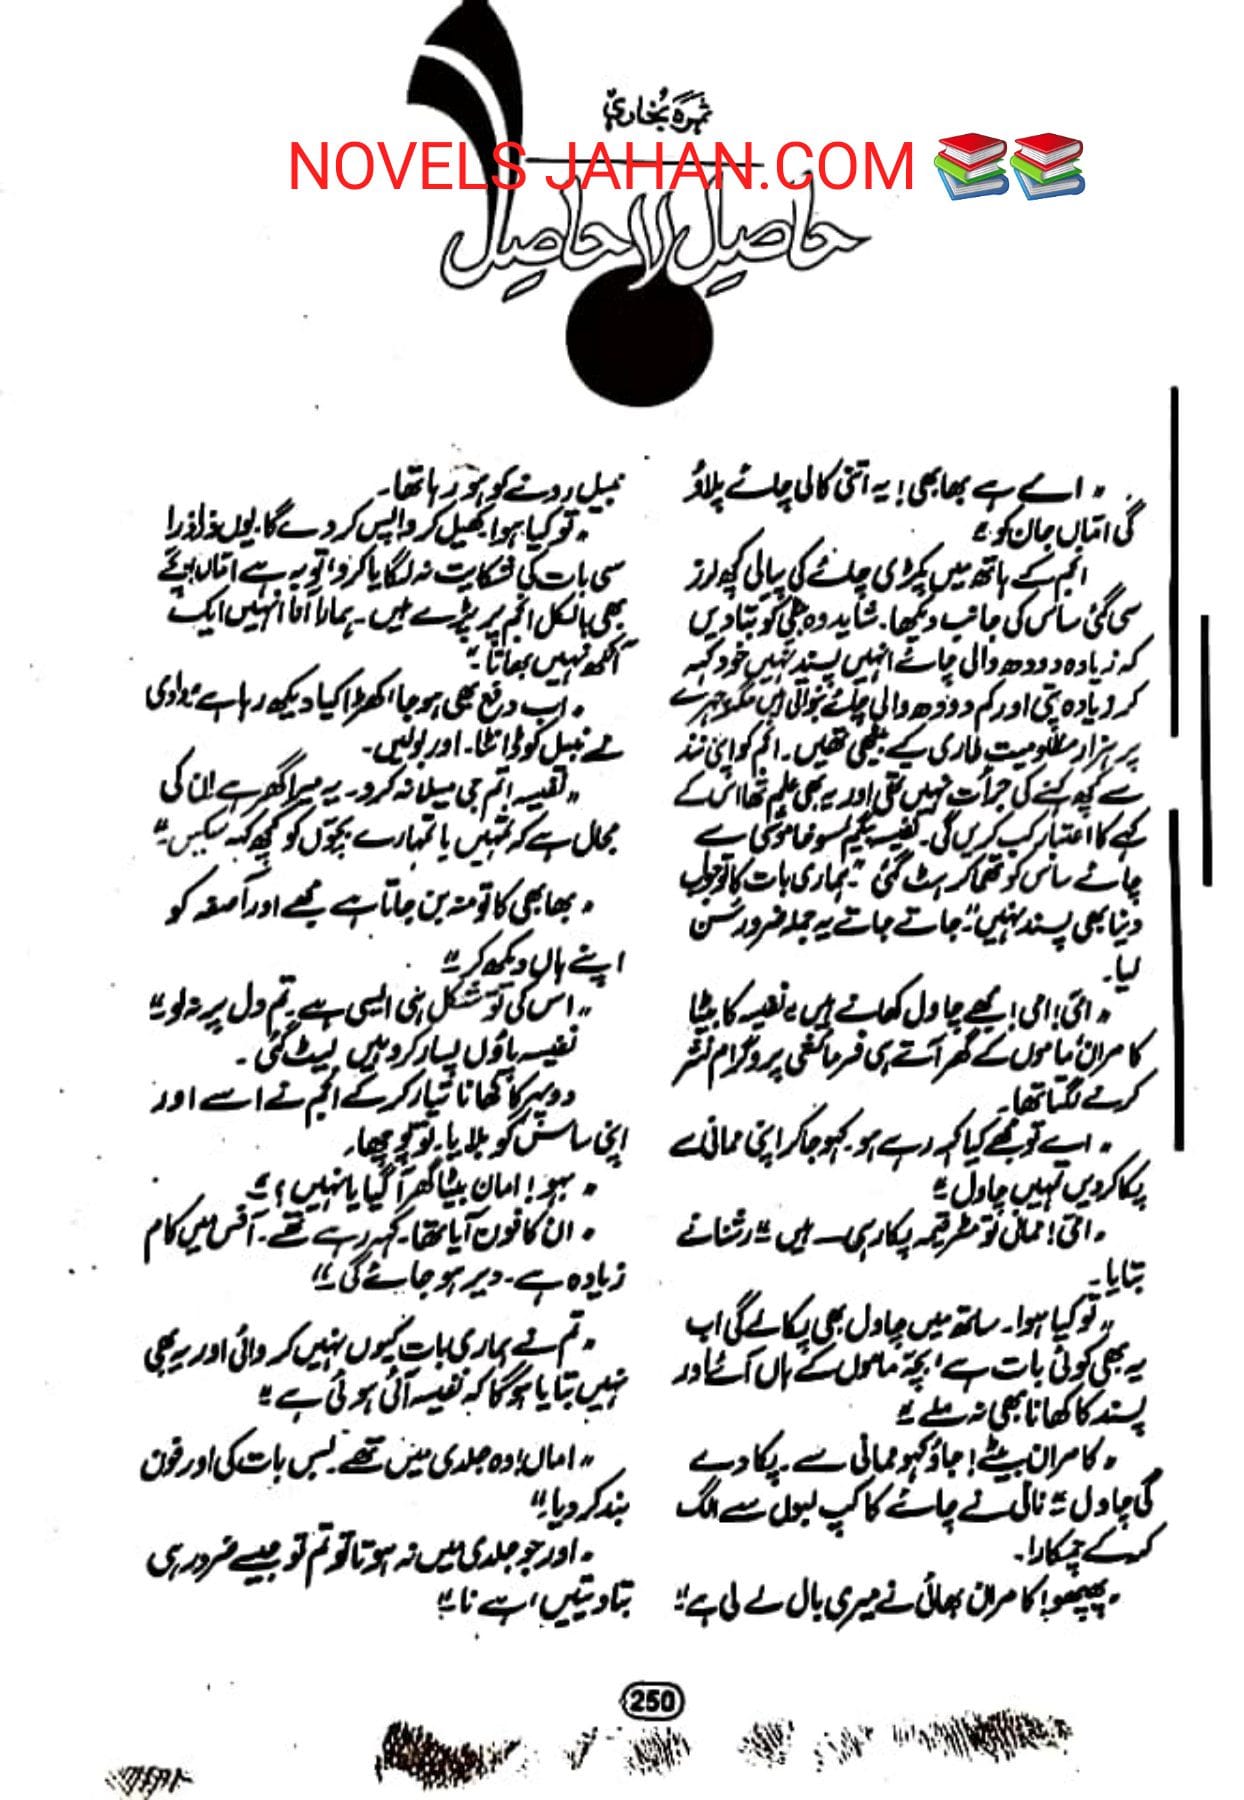 ثمرہ بخاری
NOVELS JAHAN.COM
حاصل لاحاصل
"اے ہے بھابھی! یہ اتنی کالی چائے پلاؤ
گی اماں جان کو۔"
انجم کے ہاتھ میں پکڑی چائے کی پیالی کچھ لرز
سی گئی ساس کی جانب دیکھا۔ شاید وہ بیٹی کو بتا دیں
کہ زیادہ دودھ والی چائے انہیں پسند نہیں خود کہہ
کر زیادہ پتی اور کم دودھ والی چائے بنوائی ہیں مگر چہرے
پر ہزار مظلومیت طاری کیے بیٹھی تھیں۔ انجم کو اپنی نند
سے کچھ کہنے کی جرأت نہیں تھی اور یہ بھی علم تھا اس کے
کہے کا اعتبار کب کریں گی۔ نفیسہ بیگم سو خاموشی سے
چائے ساس کو تھما کر ہٹ گئی "ہماری بات کا تو جواب
دینا بھی پسند نہیں" جاتے جاتے یہ جملہ ضرور سن
لیا۔
"امی! امی! مجھے چاول کھانے ہیں" نفیسہ کا بیٹا
کامران ماموں کے گھر آتے ہی فرمائشی پروگرام نشر
کرنے لگتا تھا۔
"اے تو مجھے کیا کہہ رہے ہو۔ کہو جا کر اپنی ممانی سے
پکا کر دیں تمہیں چاول۔"
"امی! ممانی تو مٹر قیمہ پکا رہی ہیں" رشنا نے
بتایا۔
"تو کیا ہوا۔ ساتھ میں چاول بھی پکا لے گی اب
یہ بھی کوئی بات ہے، بچہ ماموں کے ہاں آئے اور
پسند کا کھانا بھی نہ ملے۔"
"کامران بیٹے! جاؤ کہو ممانی سے۔ پکا دے
گی چاول" نانی نے چائے کا کپ لبوں سے الگ
کر کے چمکارا۔
"پھپھو! کامران بھائی نے میری بال لے لی ہے"
نبیل رونے کو ہو رہا تھا۔
"تو کیا ہوا کھیل کر واپس کر دے گا۔ یوں ذرا ذرا
سی بات کی شکایت نہ لگایا کرو، توبہ ہے اماں بچے
بھی بالکل انجم پر پڑے ہیں۔ ہمارا آنا انہیں ایک
آنکھ نہیں بھاتا۔"
"اب دفع بھی ہو جا کھڑا کیا دیکھ رہا ہے" دادی
نے نبیل کو ڈانٹا۔ اور بولیں۔
"نفیسہ! تم جی میلا نہ کرو۔ یہ میرا گھر ہے ان کی
مجال ہے کہ تمہیں یا تمہارے بچوں کو کچھ کہہ سکیں"
"بھابھی کا تو منہ بن جاتا ہے مجھے اور آصفہ کو
اپنے ہاں دیکھ کر۔"
"اس کی تو شکل ہی ایسی ہے۔ تم دل پر نہ لو"
نفیسہ پاؤں پسار کر وہیں لیٹ گئی۔
دوپہر کا کھانا تیار کر کے انجم نے اسے اور
اپنی ساس کو بلایا۔ تو پوچھا۔
"بہو! امان بیٹا گھر آ گیا یا نہیں؟"
"ان کا فون آیا تھا۔ کہہ رہے تھے۔ آفس میں کام
زیادہ ہے۔ دیر ہو جائے گی۔"
"تم نے ہماری بات کیوں نہیں کروائی اور یہ بھی
نہیں بتایا ہو گا کہ نفیسہ آئی ہوئی ہے"
"اماں! وہ جلدی میں تھے۔ بس بات کی اور فون
بند کر دیا۔"
"اور جو جلدی میں نہ ہوتا تو تم تو جیسے ضرور ہی
بتا دیتیں، اسے نا۔"
250